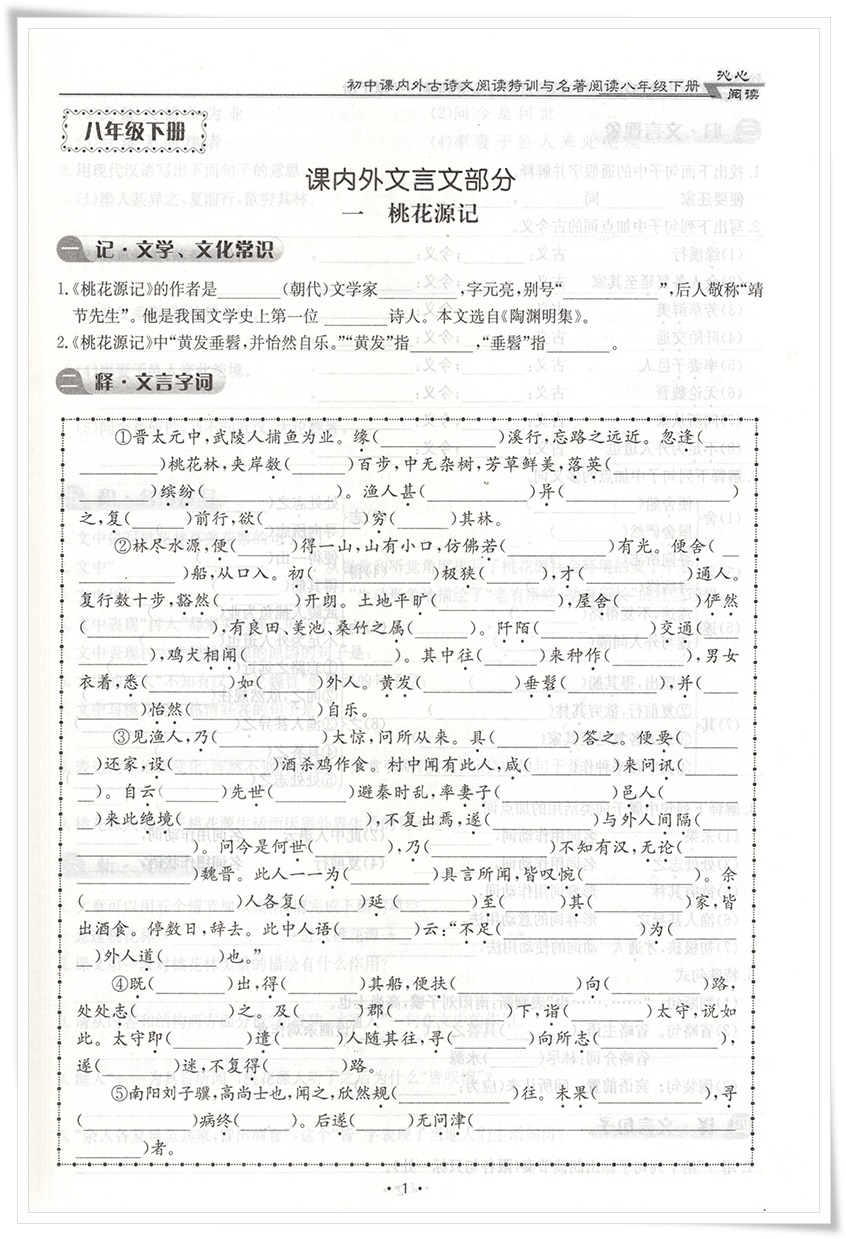 初中课内外古诗文阅读特训与名著阅读八年级下册
沁心
阅读
八年级下册
课内外文言文部分
一 桃花源记
一 记·文学、文化常识
1.《桃花源记》的作者是________(朝代)文学家________,字元亮,别号“________”,后人敬称“靖
节先生”。他是我国文学史上第一位 ________诗人。本文选自《陶渊明集》。
2.《桃花源记》中“黄发垂髫,并怡然自乐。”“黄发”指________,“垂髫”指________。
二 释·文言字词
①晋太元中,武陵人捕鱼为业。缘(________)溪行,忘路之远近。忽逢(
________)桃花林,夹岸数(________)百步,中无杂树,芳草鲜美,落英(________
________)缤纷(________)。渔人甚(________)异(________)
之,复(________)前行,欲(________)穷(________)其林。
②林尽水源,便(________)得一山,山有小口,仿佛若(________)有光。便舍(__
________)船,从口入。初(________)极狭(________),才(________)通人。
复行数十步,豁然(________)开朗。土地平旷(________),屋舍(________)俨然
(________),有良田、美池、桑竹之属(________)。阡陌(________)交通(
________),鸡犬相闻(________)。其中往(________)来种作(________),男女
衣着,悉(________)如(________)外人。黄发(________)垂髫(________),并(
________)怡然(________)自乐。
③见渔人,乃(________)大惊,问所从来。具(________)答之。便要(________
__)还家,设(________)酒杀鸡作食。村中闻有此人,咸(________)来问讯(
__)。自云(________)先世(________)避秦时乱,率妻子(________)邑人(
__)来此绝境(________),不复出焉,遂(________)与外人间隔(
________)。问今是何世(________),乃(________)不知有汉,无论(
________)魏晋。此人一一为(________)具言所闻,皆叹惋(________)。余
(________)人各复(________)延(________)至(________)其(________)家,皆
出酒食。停数日,辞去。此中人语(________)云:“不足(________)为(
__)外人道(________)也。”
④既(________)出,得(________)其船,便扶(________)向(________)路,
处处志(________)之。及(________)郡(________)下,诣(________)太守,说如
此。太守即(________)遣(________)人随其往,寻(________)向所志(________),
遂(________)迷,不复得(________)路。
⑤南阳刘子骥,高尚士也,闻之,欣然规(________)往。未果(________),寻
(________)病终(________)。后遂(________)无问津(
________)者。
·1·